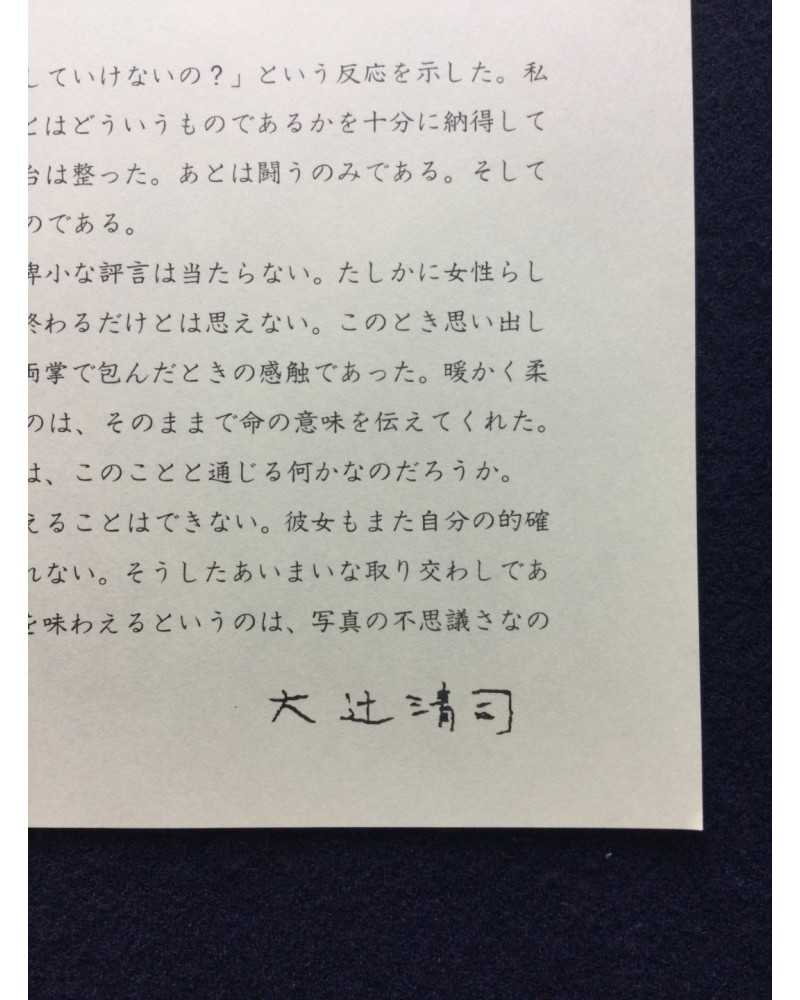 していけないの？」という反応を示した。私
とはどういうものであるかを十分に納得して
台は整った。あとは闘うのみである。そして
のである。
卑小な評言は当たらない。たしかに女性らし
終わるだけとは思えない。このとき思い出し
両掌で包んだときの感触であった。暖かく柔
のは、そのままで命の意味を伝えてくれた。
は、このことと通じる何かなのだろうか。
えることはできない。彼女もまた自分の的確
れない。そうしたあいまいな取り交わしであ
を味わえるというのは、写真の不思議さなの
大辻清司